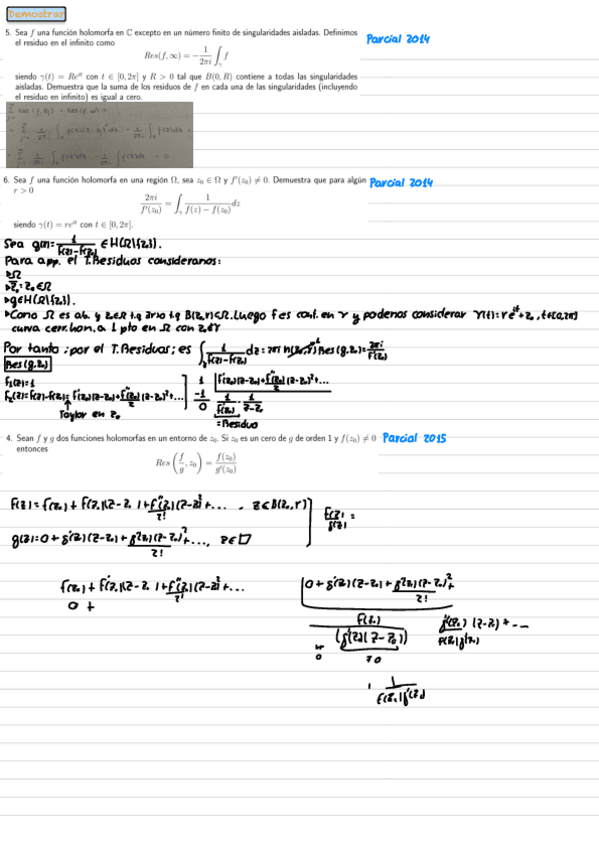 Demostrar
5. Sea f una función holomorfa en ℂ excepto en un número finito de singularidades aisladas. Definimos
el residuo en el infinito como
Parcial 2014
Res(f, ∞) = − 1/2πi ∫_γ f
siendo γ(t) = Re^{it} con t ∈ [0, 2π] y R > 0 tal que B(0, R) contiene a todas las singularidades
aisladas. Demuestra que la suma de los residuos de f en cada una de las singularidades (incluyendo
el residuo en infinito) es igual a cero.
6. Sea f una función holomorfa en una región Ω, sea z₀ ∈ Ω y f'(z₀) ≠ 0. Demuestra que para algún
r > 0
Parcial 2014
2πi/f'(z₀) = ∫_γ 1/(f(z) − f(z₀)) dz
siendo γ(t) = re^{it} con t ∈ [0, 2π].
Sea g(z)= 1/(f(z)-f(z₀)) ∈ H(Ω\{z₀}).
Para app. el T.Residuos consideramos:
▸Ω
▸z₀ ∈ Ω
▸g∈H(Ω\{z₀}).
▸Como Ω es ab. y z₀∈Ω
Luego f es cont. en γ y podemos considerar γ(t)= r e^{it}+z₀, t∈[0,2π]
curva cerr. hom. a 1 pto en Ω con z₀∉γ
Por tanto; por el T.Residuos; es ∫_γ 1/(f(z)-f(z₀)) dz = 2πi n(γ,z₀) Res(g,z₀) = 2πi/f'(z₀)
Res(g,z₀)
f₁(z)=1
f₂(z)=f(z)-f(z₀)= f'(z₀)(z-z₀)+f''(z₀)/2 (z-z₀)²+...
Taylor en z₀
1
f'(z₀)(z-z₀)+f''(z₀)/2 (z-z₀)²+...
-1
0
1/f'(z₀) · 1/(z-z₀)
=Residuo
4. Sean f y g dos funciones holomorfas en un entorno de z₀. Si z₀ es un cero de g de orden 1 y f(z₀) ≠ 0
entonces
Parcial 2015
Res (f/g, z₀) = f(z₀)/g'(z₀)
f(z)= f(z₀)+ f'(z₀)(z-z₀)+f''(z₀)/2! (z-z₀)²+..., z∈B(z₀,r)
f(z)/g(z) =
g(z)=0+g'(z₀)(z-z₀)+g''(z₀)(z-z₀)²/2! +...,
f(z₀)+ f'(z₀)(z-z₀)+f''(z₀)/2! (z-z₀)²+...
0+g'(z₀)(z-z₀)+g''(z₀)(z-z₀)²/2! +
0 +
f(z₀)/(g'(z₀)(z-z₀))